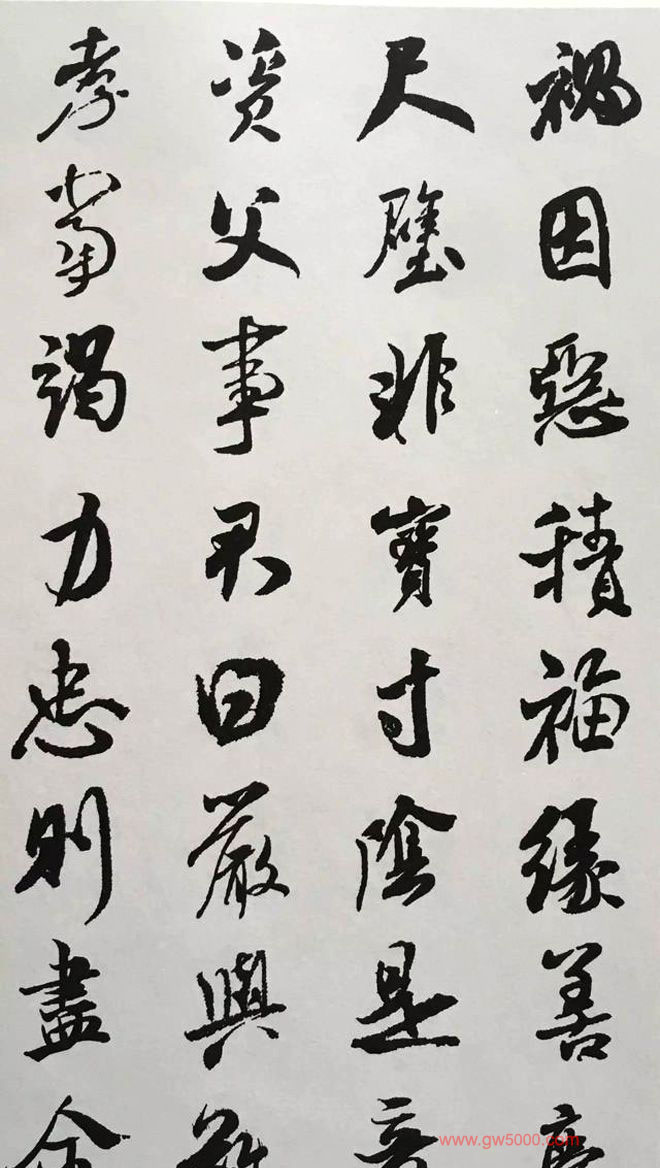 禍因惡積福緣善慶
尺璧非寶寸陰是競
資父事君曰嚴與敬
孝當竭力忠則盡命
www.gw5000.com